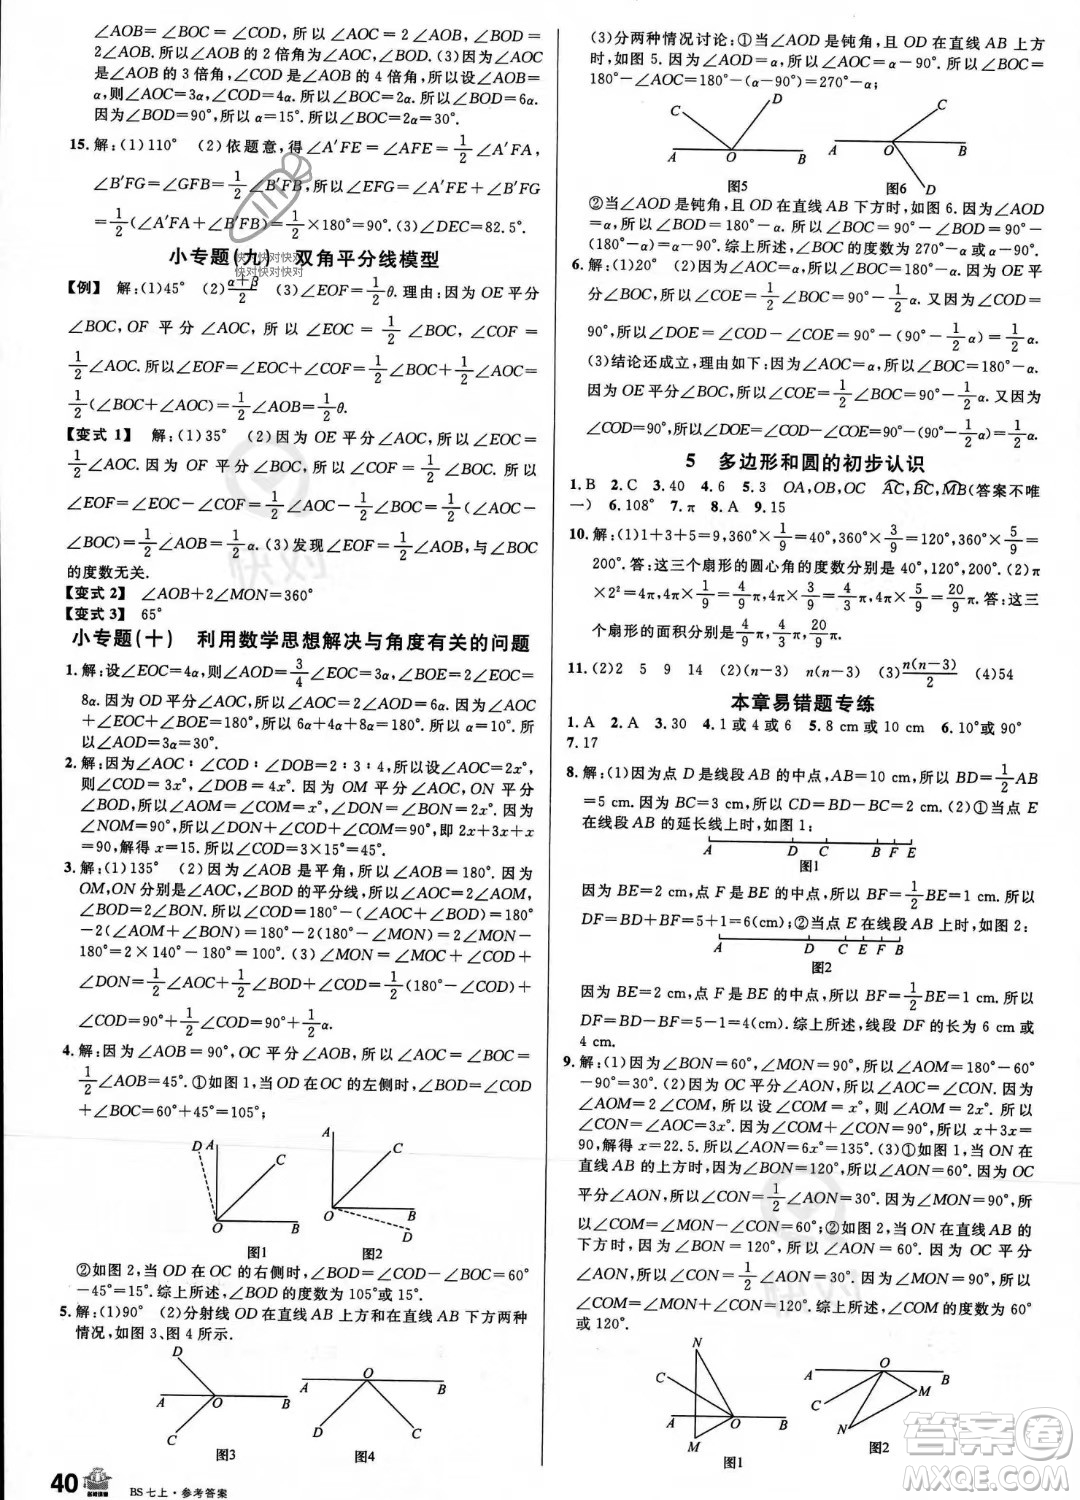 ∠AOB=∠BOC+∠AOC,所以∠COD=2∠AOB,所以∠AOC=
∠AOB.所以∠AOB的2倍角为∠AOC,∠BOD.(3)因为∠AOC是
∠AOB的3倍角,∠COD是∠AOB的4倍角,所以设∠AOB=
α,则∠AOC=3α,∠COD=4α.所以∠BOC=2α.所以∠BOD=6α.
因为∠BOD=90°,所以α=15°.所以∠BOC=2α=30°.
15.解:(1)110° (2)依题意,得∠A′FE=∠AFE=1/2∠A′FA,
∠B′FG=∠GFB=1/2∠B′FB,所以∠EFG=∠A′FE+∠B′FG=
1/2(∠A′FA+∠B′FB)=1/2×180°=90°.(3)∠DEC=82.5°.
小专题(九) 双角平分线模型
【例】 解:(1)45° (2)(α+β)/2 (3)∠EOF=1/2θ.理由:因为OE平分
∠BOC,OF平分∠AOC,所以∠EOC=1/2∠BOC,∠COF=
1/2∠AOC.所以∠EOF=∠EOC+∠COF=1/2∠BOC+1/2∠AOC=
1/2(∠BOC+∠AOC)=1/2∠AOB=1/2θ.
【变式1】 解:(1)35° (2)因为OE平分∠AOC,所以∠EOC=
1/2∠AOC.因为OF平分∠BOC,所以∠COF=1/2∠BOC.所以
∠EOF=∠EOC-∠COF=1/2∠AOC-1/2∠BOC=1/2(∠AOC-
∠BOC)=1/2∠AOB=1/2α.(3)发现∠EOF=1/2∠AOB,与∠BOC
的度数无关.
【变式2】 ∠AOB+2∠MON=360°
【变式3】 65°
小专题(十) 利用数学思想解决与角度有关的问题
1.解:设∠EOC=4α,则∠AOD=3/4∠EOC=3α,∠BOE=2∠EOC=
8α.因为OD平分∠AOC,所以∠AOC=2∠AOD=6α.所以
∠AOC+∠EOC+∠BOE=180°,所以6α+4α+8α=180°,所以α=10°.
所以∠AOD=3α=30°.
2.解:因为∠AOC∶∠COD∶∠DOB=2∶3∶4,所以设∠AOC=2x°,
则∠COD=3x°,∠DOB=4x°.因为OM平分∠AOC,ON平分
∠DOB,所以∠COM=x°,∠DON=1/2∠BOD=2x°.因为
∠NOM=90°,所以∠DON+∠COD+∠COM=90°,即2x+3x+x
=90,解得x=15.所以∠COD=3×15°=45°.
3.解:(1)135° (2)因为∠AOB是平角,所以∠AOB=180°.因为
OM,ON分别是∠AOC,∠BOD的平分线,所以∠AOC=2∠AOM,
∠BOD=2∠BON.所以∠COD=180°-(∠AOC+∠BOD)=180°
-2(∠AOM+∠BON)=180°-2(180°-∠MON)=2∠MON
-180°=2×140°-180°=100°.(3)∠MON=∠MOC+∠COD+
∠DON=1/2∠AOC+1/2∠BOD+∠COD=1/2(180°-∠COD)+
∠COD=90°+1/2∠COD=90°+1/2α.
4.解:因为∠AOB=90°,OC平分∠AOB,所以∠AOC=∠BOC=
1/2∠AOB=45°.①如图1,当OD在OC的左侧时,∠BOD=∠COD
+∠BOC=60°+45°=105°;
D A C O B 图1
A C O B D 图2
②如图2,当OD在OC的右侧时,∠BOD=∠COD-∠BOC=60°
-45°=15°.综上所述,∠BOD的度数为105°或15°.
5.解:(1)90° (2)分射线OD在直线AB上方和在直线AB下方两种
情况,如图3、图4所示.
D A O B C 图3
A O B D C 图4
40 BS七上·参考答案
(3)分两种情况讨论:①当∠AOD是钝角,且OD在直线AB上方
时,如图5.因为∠AOD=α,所以∠AOC=α-90°.所以∠BOC=
180°-∠AOC=180°-(α-90°)=270°-α;
C D A O B 图5
C A O B D 图6
②当∠AOD是钝角,且OD在直线AB下方时,如图6.因为∠AOD
=α,所以∠BOD=180°-α.因为∠COD=90°,所以∠BOC=90°-
∠BOD=α-90°.综上所述,∠BOC的度数为270°-α或α-90°.
6.解:(1)20° (2)因为∠AOC=α,所以∠BOC=180°-α.因为OE
平分∠BOC,所以∠COE=1/2∠BOC=90°-1/2α.又因为∠COD=
90°,所以∠DOE=∠COD-∠COE=90°-(90°-1/2α)=1/2α.
(3)结论还成立,理由如下:因为∠AOC=α,所以∠BOC=180°-α.
因为OE平分∠BOC,所以∠COE=1/2∠BOC=90°-1/2α.又因为
∠COD=90°,所以∠DOE=∠COD-∠COE=90°-(90°-1/2α)=1/2α.
5 多边形和圆的初步认识
1.B 2.C 3.40 4.6 5.3 OA,OB,OC AC,BC,MB(答案不唯
一) 6.108° 7.π 8.A 9.15
10.解:(1)1+3+5=9,360°×1/9=40°,360°×3/9=120°,360°×5/9=
200°.答:这三个扇形的圆心角的度数分别是40°,120°,200°.(2)π
×2²=4π,4π×1/9=4/9π,4π×3/9=4/3π,4π×5/9=20/9π.答:这三
个扇形的面积分别是4/9π,4/3π,20/9π.
11.(2)2 5 9 14 (2)(n-3) n(n-3) (3)n(n-3)/2 (4)54
本章易错题专练
1.A 2.A 3.30 4.1或4或6 5.8 cm或10 cm 6.10°或90°
7.17
8.解:(1)因为点D是线段AB的中点,AB=10 cm,所以BD=1/2AB
=5 cm.因为BC=3 cm,所以CD=BD-BC=2 cm.(2)①当点E
在线段AB的延长线上时,如图1:
A D C B F E
图1
因为BE=2 cm,点F是BE的中点,所以BF=1/2BE=1 cm.所以
DF=BD+BF=5+1=6(cm);②当点E在线段AB上时,如图2:
A D C E F B
图2
因为BE=2 cm,点F是BE的中点,所以BF=1/2BE=1 cm.所以
DF=BD-BF=5-1=4(cm).综上所述,线段DF的长为6 cm或
4 cm.
9.解:(1)因为∠BON=60°,∠MON=90°,所以∠AOM=180°-60°
-90°=30°.(2)因为OC平分∠AON,所以∠AOC=∠CON.因为
∠AOM=2∠COM,所以设∠COM=x°,则∠AOM=2x°.所以
∠CON=∠AOC=∠AOM+∠COM=3x°.因为∠MON=90°,所以x+3x=
90,解得x=22.5.所以∠AON=6x°=135°.(3)①如图1,当ON在
直线AB的上方时,因为∠BON=120°,所以∠AON=60°.因为OC
平分∠AON,所以∠CON=1/2∠AON=30°.因为∠MON=90°,所
以∠COM=∠MON-∠CON=60°;②如图2,当ON在直线AB的
下方时,因为∠BON=120°,所以∠AON=60°.因为OC平分
∠AON,所以∠CON=1/2∠AON=30°.因为∠MON=90°,所以
∠COM=∠MON+∠CON=120°.综上所述,∠COM的度数为60°
或120°.
N C A O B M 图1
A O B C M N 图2
快对快对快对
快对快对快对
快对
答案圈
MXQE.COM